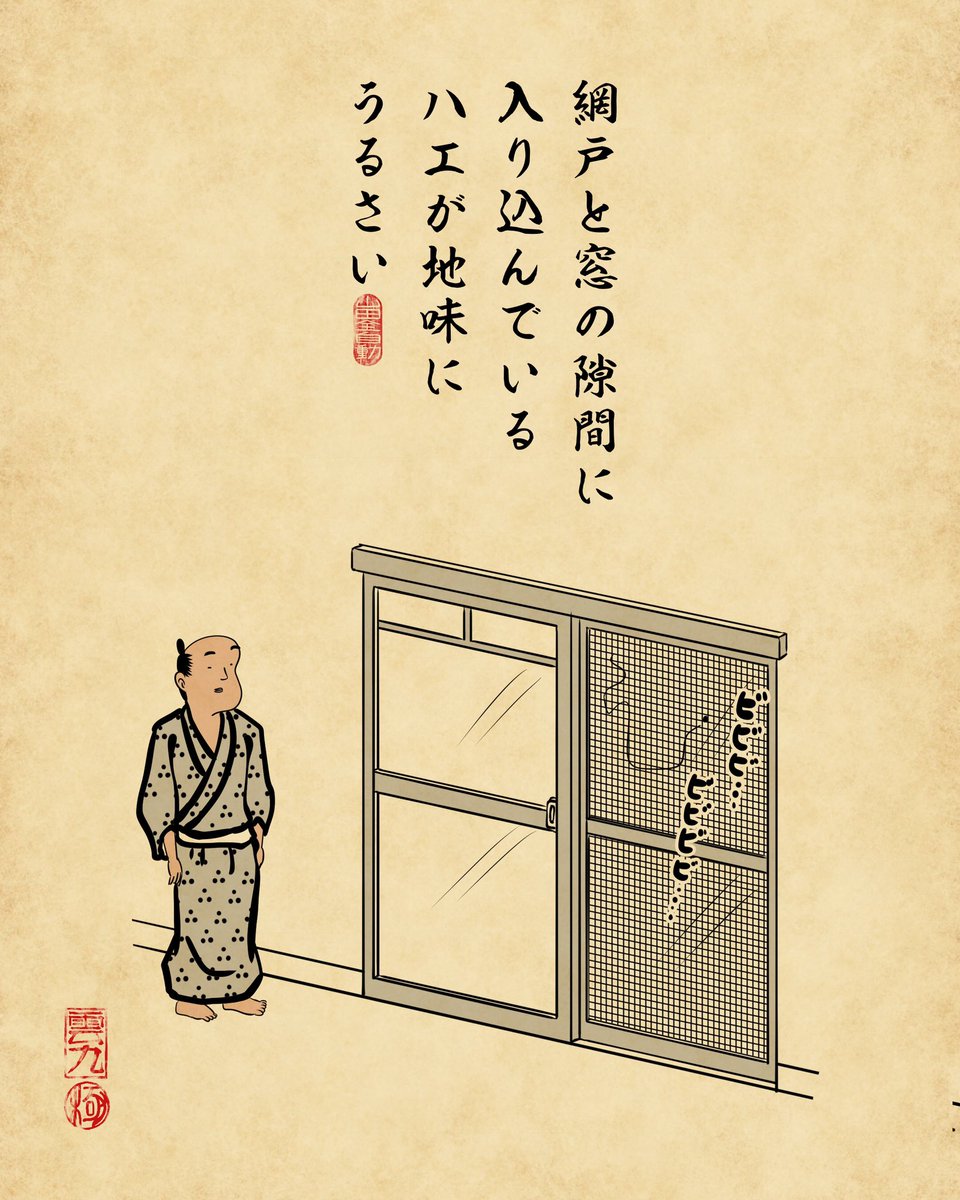 網戸と窓の隙間に
入り込んでいる
ハエが地味に
うるさい
ビビビ…
ビビビビ…